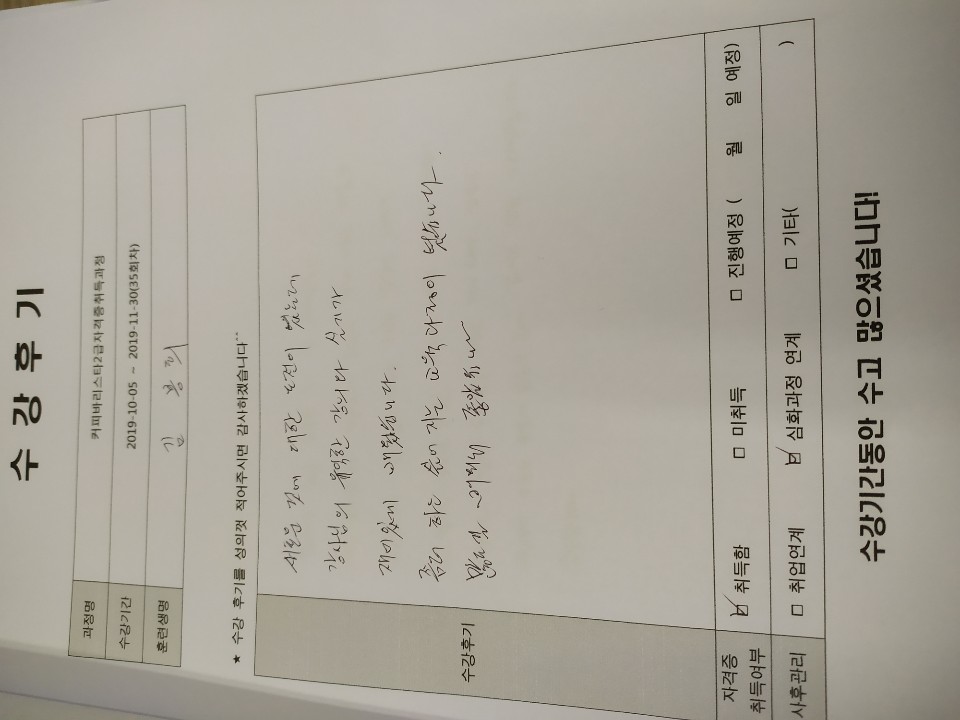 수 강 후 기
과정명 커피바리스타2급자격증취득과정
수강기간 2019-10-05 ~ 2019-11-30(35회차)
훈련생명 김
★ 수강 후기를 성의껏 적어주시면 감사하겠습니다^^
수강후기
새로운 것에 대한 도전이 었는데
강사님의 유익한 강의다
재미있게 배웠습니다.
하는 교육과정이 었습니다.
좋았습니다
자격증 취득여부 ☑ 취득함 □ 미취득 □ 진행예정 ( 월 일 예정)
사후관리 □ 취업연계 ☑ 심화과정 연계 □ 기타( )
수강기간동안 수고 많으셨습니다!